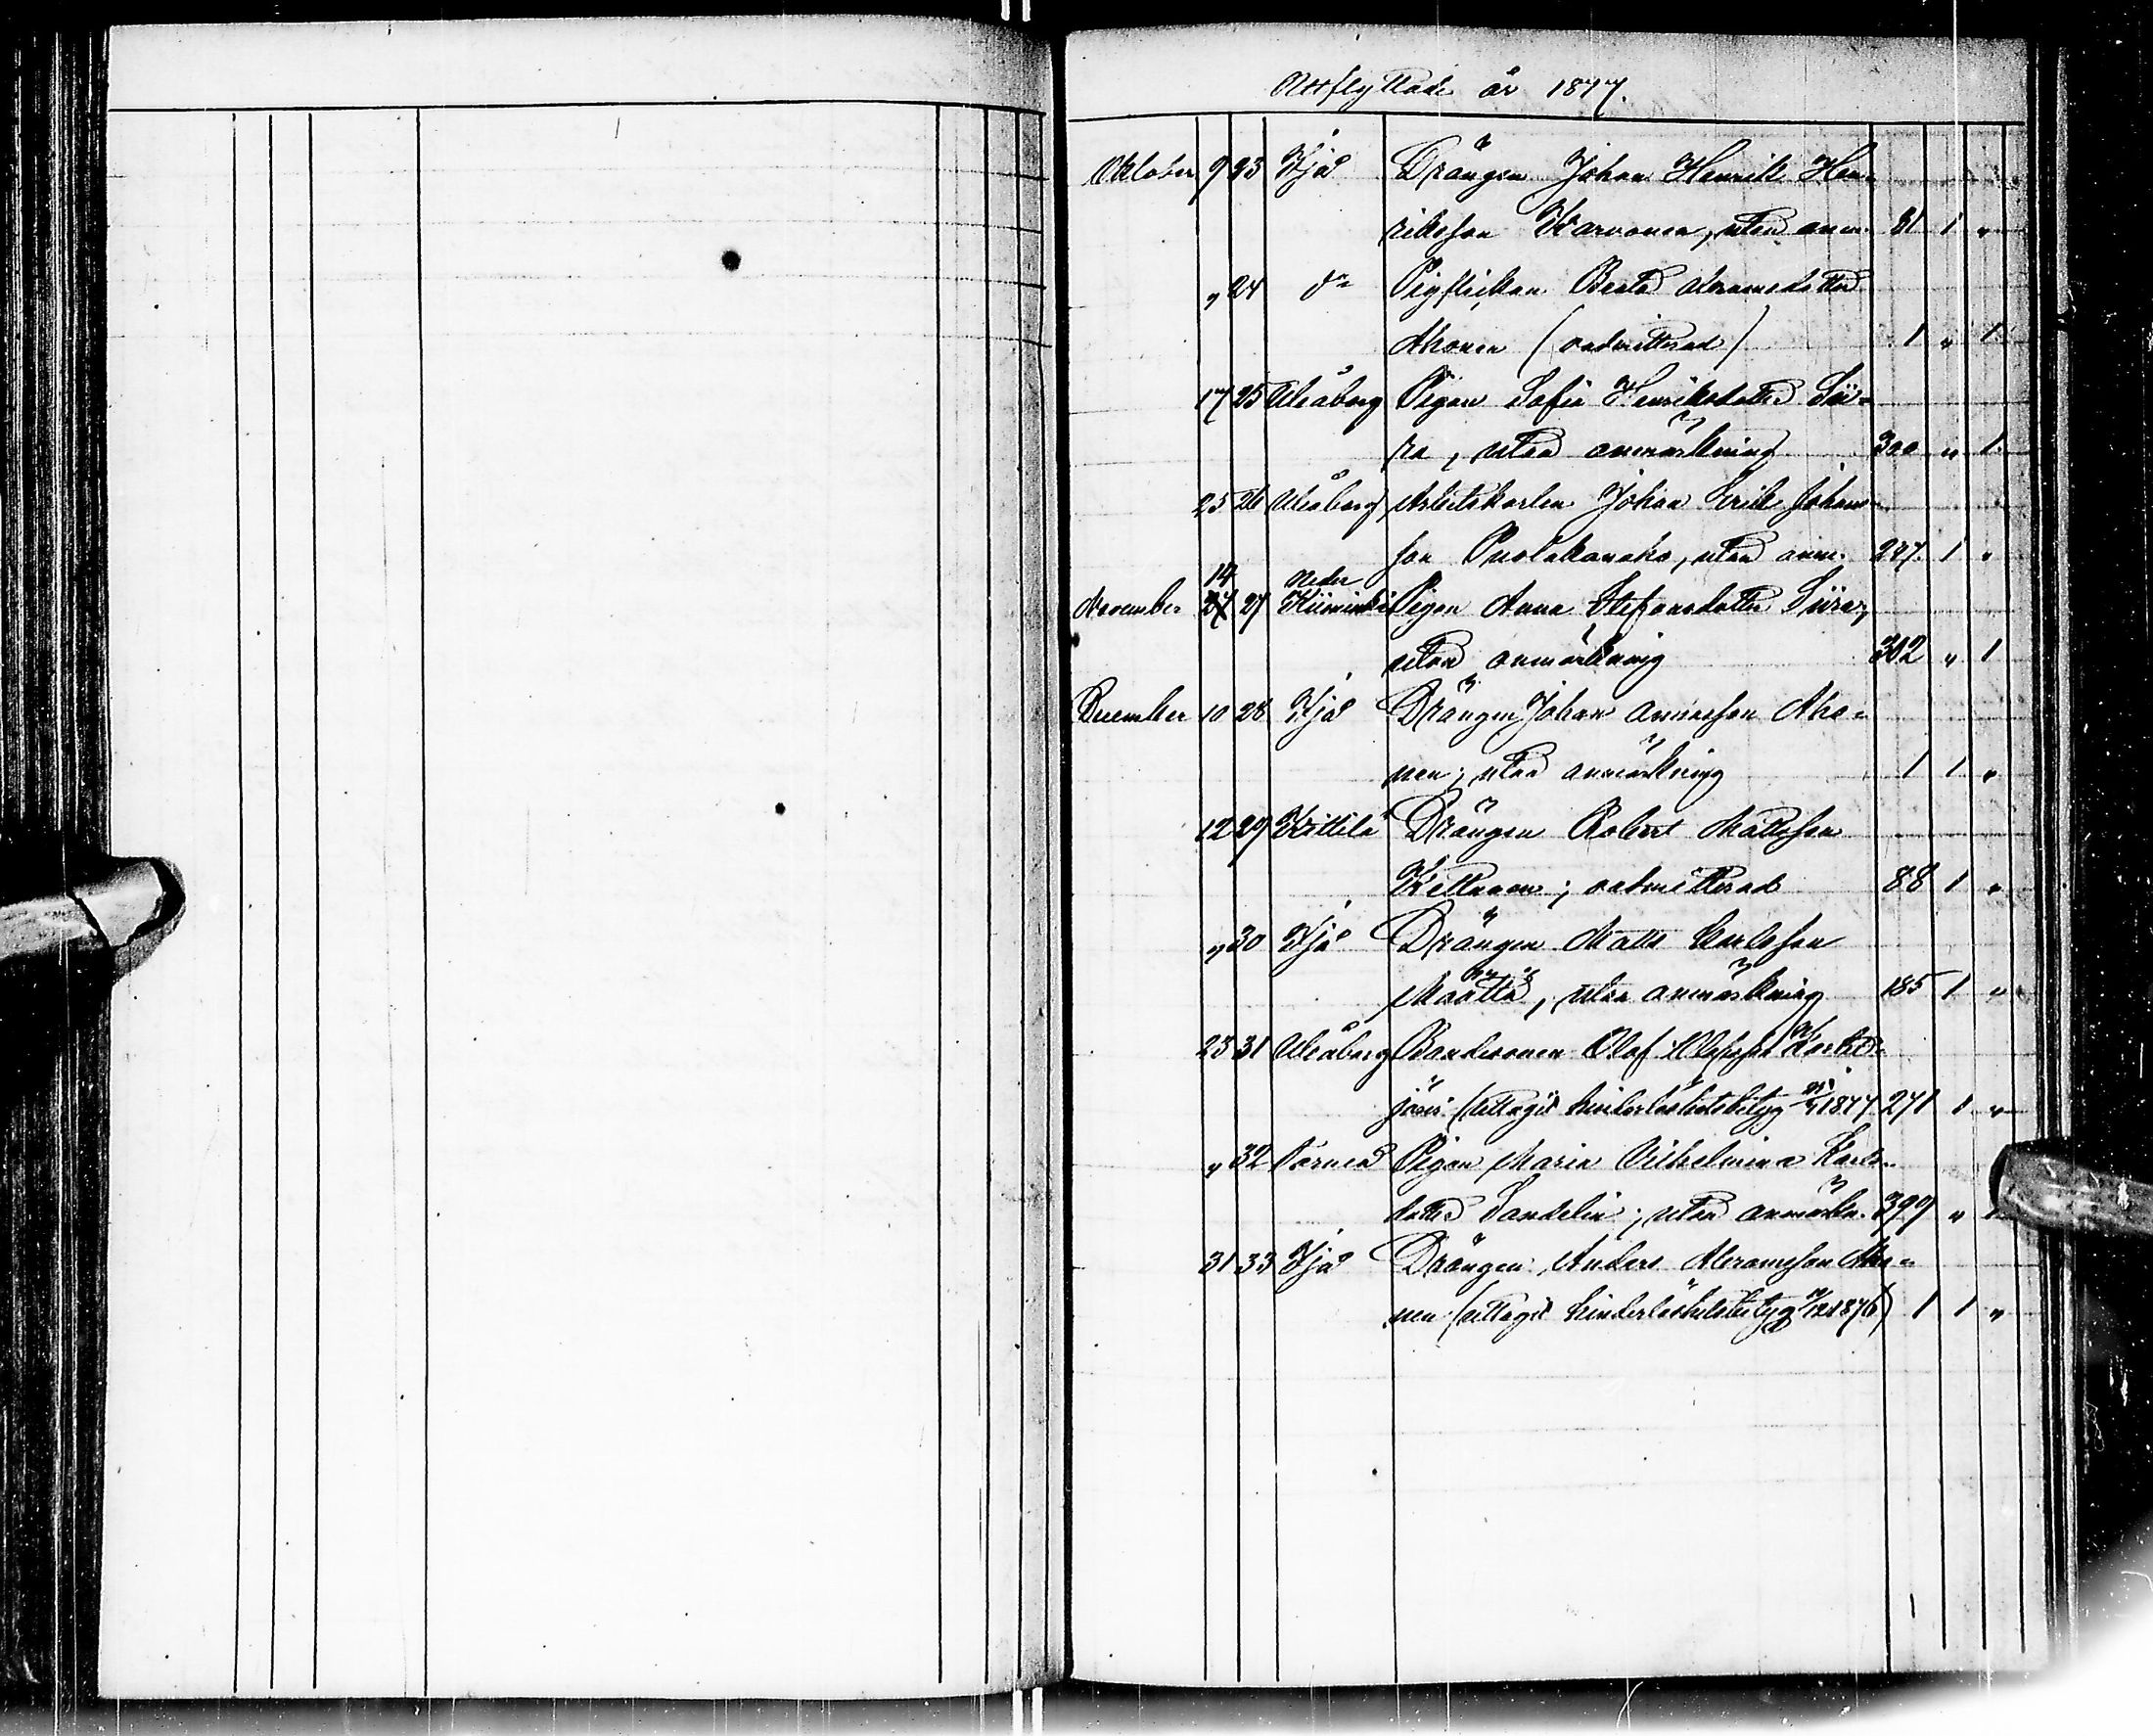 Utflyttade år 1877.
Oktober 9 23 Ijo Drängen Johan Henrik Hen-
riksson Karvonen, utan anm. 31 1 "
" 24 do Pigflickan Beata Abramsdotter
Ahonen (oadmitterad) 1 " 1
17 25 Uleåborg Pigan Sofia Henriksdotter Sii-
ra, utan anmärkning 300 " 1
25 26 Uleåborg Arbetskarlen Johan Erik Johans-
son Puolakanaho, utan anm. 297. 1 "
14 Neder
November 27 Kiiminki Pigan Anna Stefansdotter Siira,
utan anmärkning 302 " 1
December 10 28 Ijo Drängen Johan Aronsson Aho-
nen; utan anmärkning 1 1 "
12 29 Kittilä Drängen Robert Mattsson
Kettunen; oadmitterad 88 1 "
" 30 Ijo Drängen Matts Karlsson
Määttä, utan anmärkning 185 1 "
23 31 Uleåborg Bondesonen Olof Olofsson
järvi (uttagit hinderlöshetsbetyg 1877 271 1 "
" 32 Torneå Pigan Maria Vilhelmina Karls-
dotter Sandelin; utan anmärkn. 399 "
31 33 Ijo Drängen Anders Abramsson Aho-
nen (uttagit hinderlöshetsbetyg 1876) 1 1 "